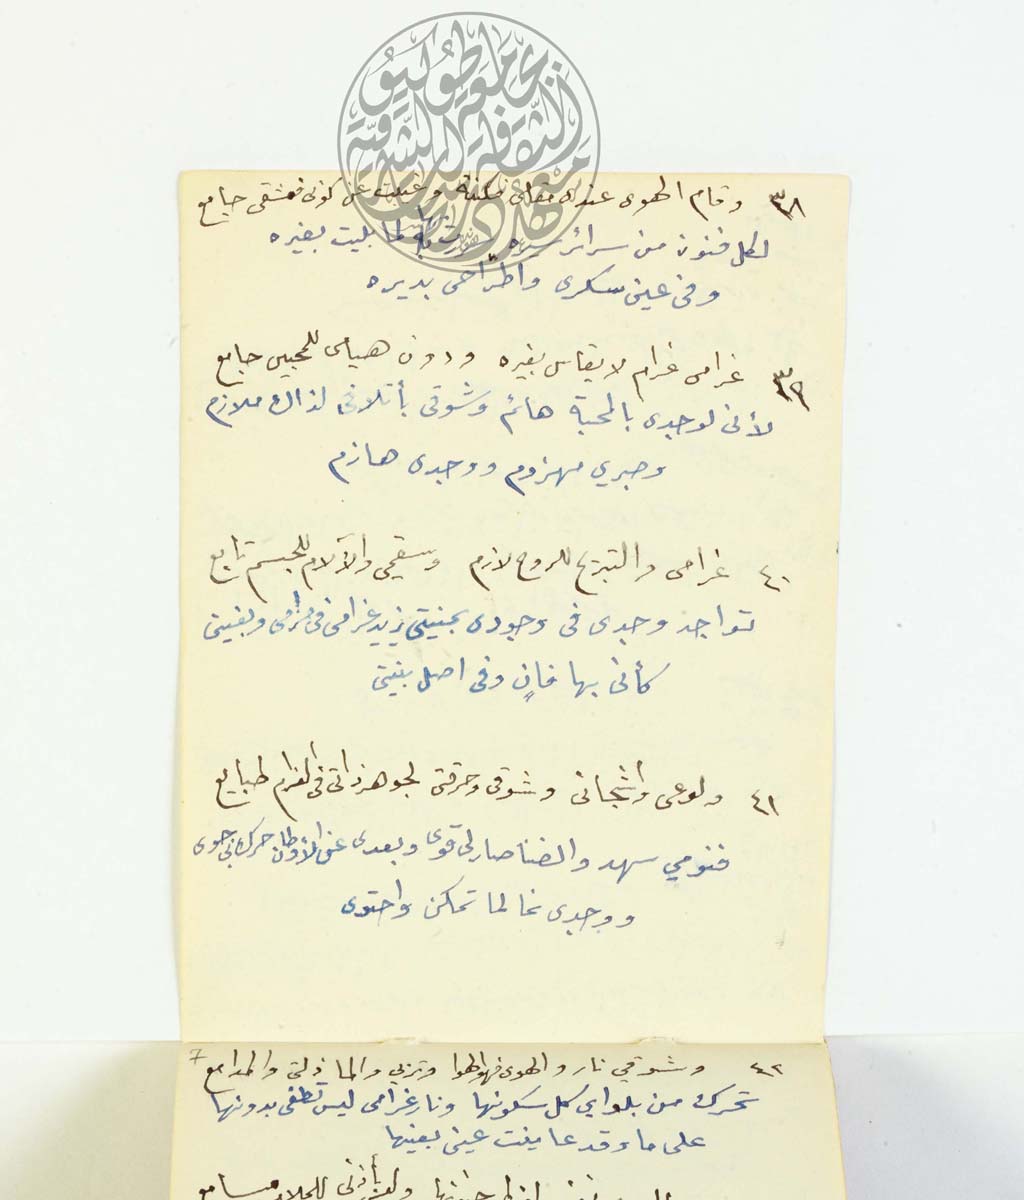 ٣٨ وقام الهوى عندى مقامى فكنته وغبت عن كونى فعشقى جامع
لكل فنون من سرائر سيره لما بليت بغيره
وفى عين سكرى واطراحى بديره
٣٩ غرامى غرام لا يقاس بغيره ودون هيامى للمحبين جامع
لأنى لوجدى بالمحبة هائم وشوقى بأتلافى لذاك ملازم
وصبري مهزوم ووجدى هازم
٤٠ غرامى والتبريح للروح لازم وسقمى والآلام للجسم تابع
تواجد وجدى فى وجودى بجنيتى يزيد غرامى فى مرامى وبغيتى
كأنى بها فانٍ وفى اصل بنيتى
٤١ ولوعى واشجانى وشوقى وحرقتى لجوهر ذاتى فى الغرام طبايع
فنومي سهد والضنا صار لى قوى وبعدى عن الأوطان حركنى جوى
ووجدى نما لما تمكن واحتوى
7
٤٢ وشوقي نار والهوى فهو الهوا وتربي والما ذلتى والمدامع
تحرك من بلواي كل سكونها ونار غرامى ليس تطفى بدونها
على ماء وقد عاينت عينى بعينها